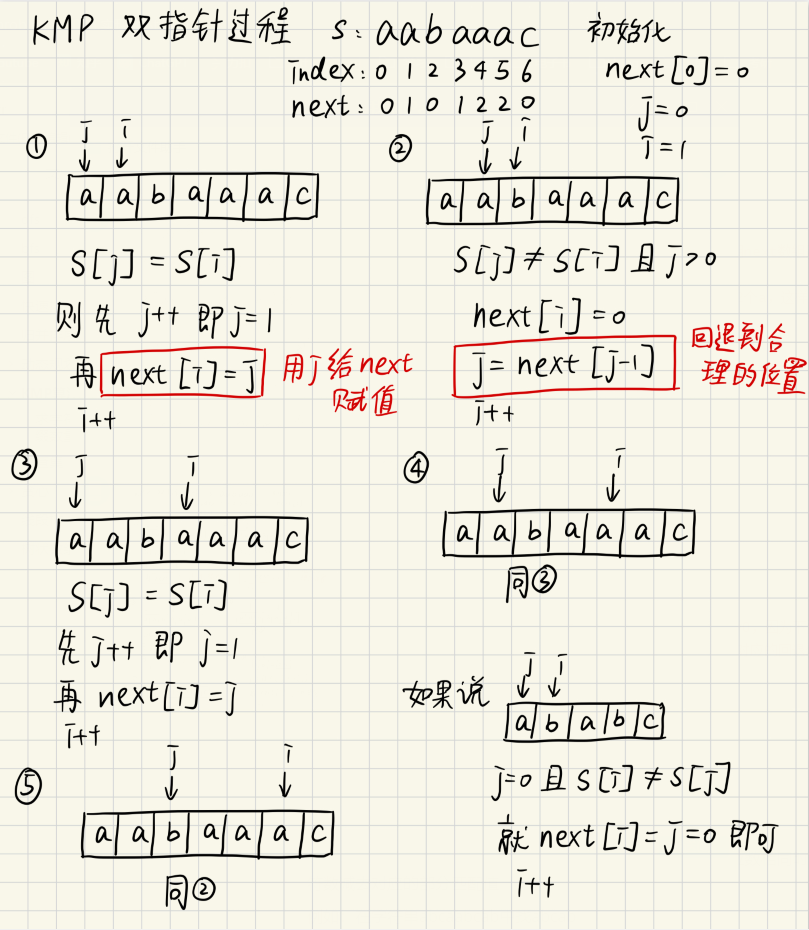 KMP 双指针过程 s: aabaaac 初始化
index: 0 1 2 3 4 5 6 next[0]=0
next: 0 1 0 1 2 2 0 j=0
i=1
① j i
a a b a a a c
S[j] = S[i]
则先 j++ 即 j=1
再 next[i]=j 用j给next
赋值
i++
② j i
a a b a a a c
S[j] ≠ S[i] 且 j>0
next[i]=0
j= next[j-1] 回退到合
理的位置
i++
③ j i
a a b a a a c
S[j] = S[i]
先 j++ 即 j=1
再 next[i]=j
i++
④ j i
a a b a a a c
同③
⑤ j i
a a b a a a c
同②
如果说 j i
a b a b c
j=0 且 S[i] ≠ S[j]
就 next[i]=j=0 即可
i++